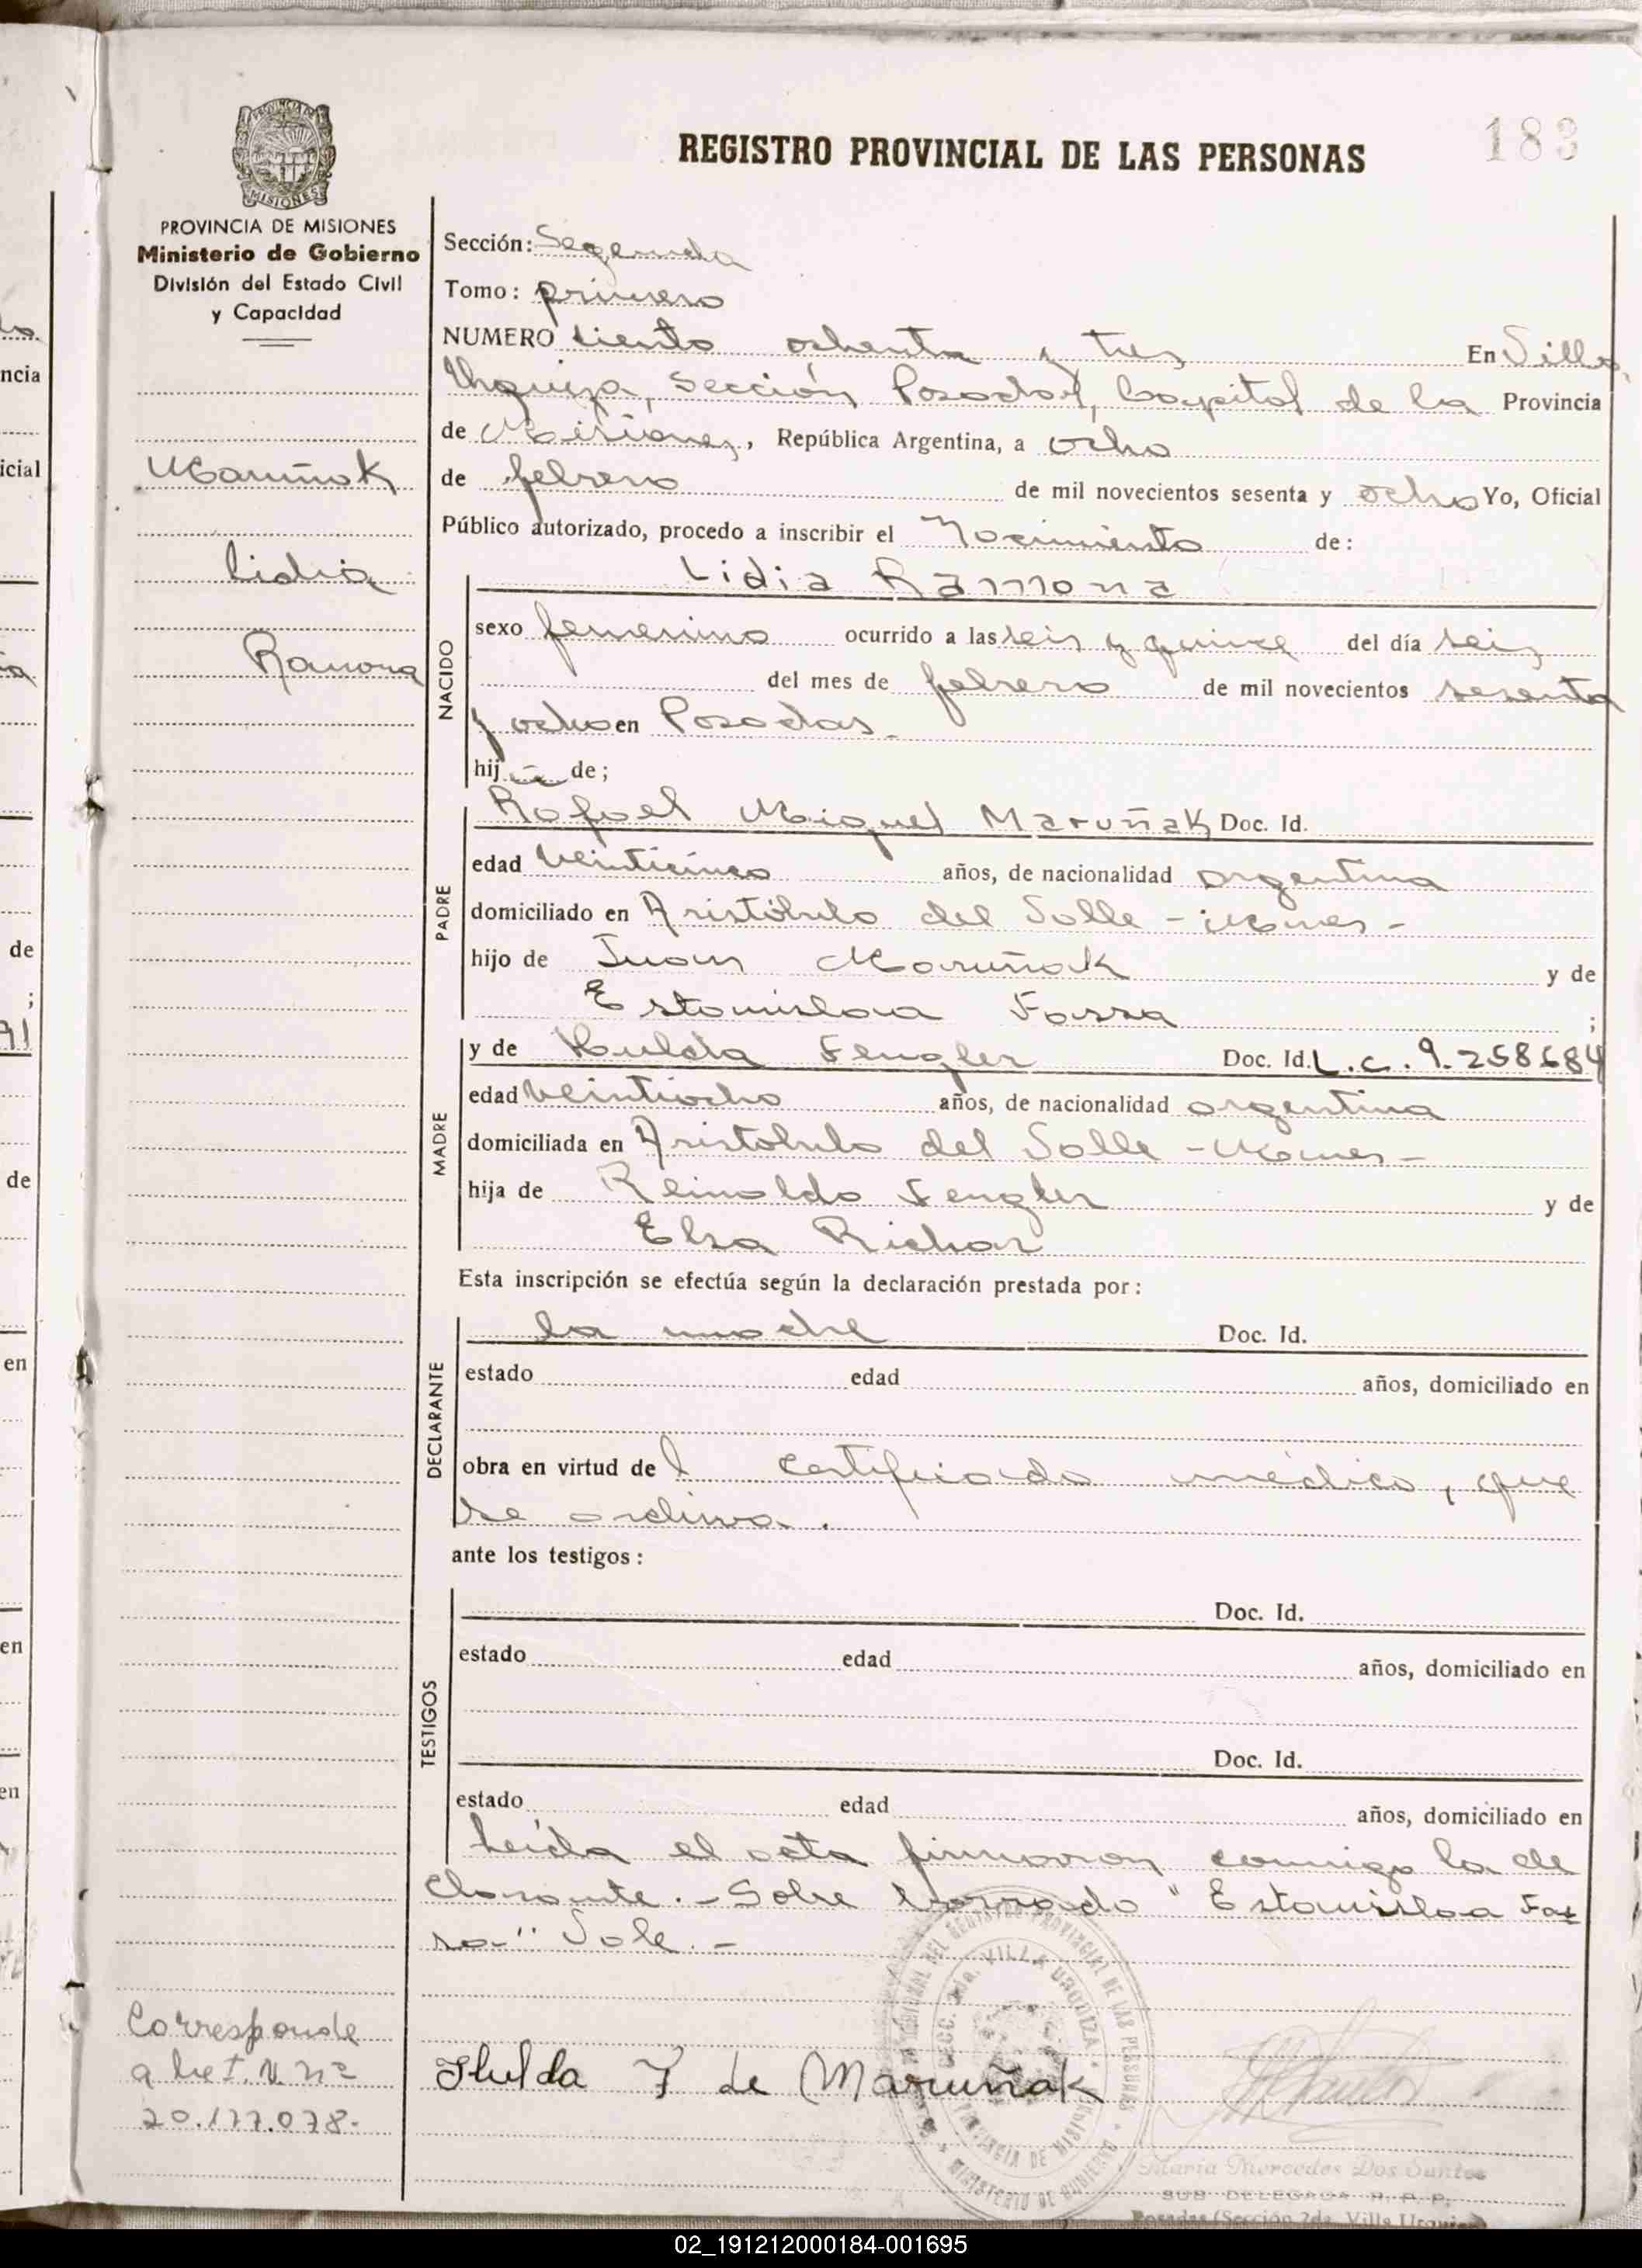 183
REGISTRO PROVINCIAL DE LAS PERSONAS
PROVINCIA DE MISIONES
Ministerio de Gobierno
División del Estado Civil
y Capacidad
Maruñak
Lidia
Ramona
Sección: Segunda
Tomo: primero
NUMERO ciento ochenta y tres En Villa
Urquiza, Sección Posadas, Capital de la Provincia
de Misiones, República Argentina, a ocho
de febrero de mil novecientos sesenta y ocho Yo, Oficial
Público autorizado, procedo a inscribir el Nacimiento de:
Lidia Ramona
NACIDO
sexo femenino ocurrido a las seis y quince del día seis
del mes de febrero de mil novecientos sesenta
y ocho en Posadas.
hij a de;
PADRE
Rafael Miguel Maruñak Doc. Id.
edad veinticinco años, de nacionalidad argentina
domiciliado en Aristóbulo del Valle - Mnes -
hijo de Juan Maruñak y de
Estanislaa Fassa ;
MADRE
y de Hulda Fengler Doc. Id. L.C. 9.258684
edad veintiocho años, de nacionalidad argentina
domiciliada en Aristobulo del Valle - Mnes -
hija de Reinaldo Fengler y de
Elsa Richar
Esta inscripción se efectúa según la declaración prestada por:
DECLARANTE
la madre Doc. Id.
estado edad años, domiciliado en
obra en virtud de l certificado médico, que
se archiva.
ante los testigos:
TESTIGOS
Doc. Id.
estado edad años, domiciliado en
Doc. Id.
estado edad años, domiciliado en
Leída el acta firmaron conmigo la de
clarante. - Sobre borrado "Estanislaa Fas
sa" Vale. -
Corresponde
a N. nº
20.177.078-
Hulda F de Maruñak
VILLA URQUIZA
REGISTRO PROVINCIAL DE LAS PERSONAS
MINISTERIO DE GOBIERNO
PROVINCIA DE MISIONES
María Mercedes Dos Santos
SUB DELEGADA R. P. P.
Posadas (Sección 2da. Villa Urquiza)
ncia
icial
de
;
de
en
en
en
02_191212000184-001695